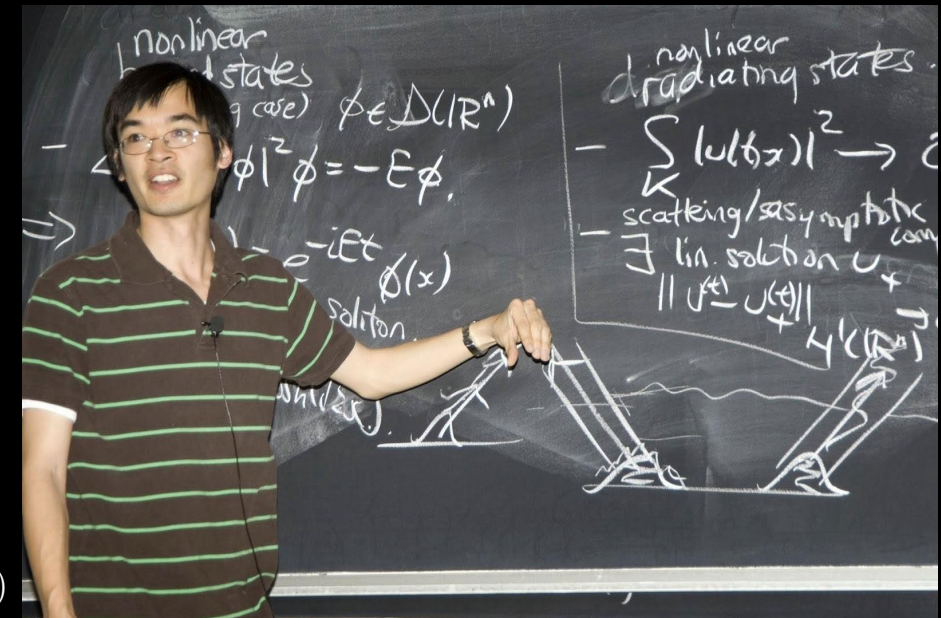 nonlinear
states
case) φ ∈ (ℝⁿ)
φ|²φ = -Eφ.
⇒
e^{-iEt} φ(x)
soliton
nonlinear
radiating states.
- ∫_K |u(t,x)|² →
- scattering/asymptotic
∃ lin. solution u₊
||u(t) - u₊(t)||
H¹(ℝⁿ)
)